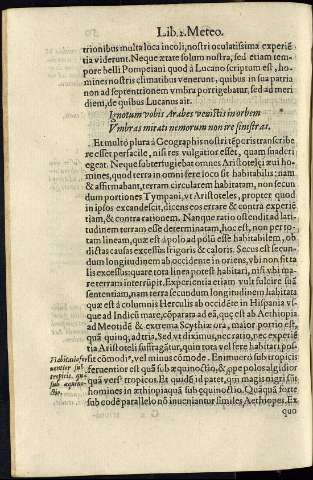 Lib. 2. Meteo.
trionibus multa loca incoli, nostri oculatissima experiē
tia viderunt. Neque ætate solum nostra, sed etiam tem-
pore belli Pompeiani quod à Lucano scriptum est, ho-
mines nostris climatibus venerunt, quibus in sua patria
non ad septentrionem vmbra porrigebatur, sed ad meri
diem, de quibus Lucanus ait.
Ignotum vobis Arabes venistis in orbem
Vmbras mirati nemorum non ire sinistras.
Et multò plura à Geographis nostri tēporis transcribe
re esset perfacile, nisi res vulgatior esset, quam suaderi
egeat. Neque subterfugiebat omnes Aristotelici æui ho-
mines, quod terra in omni fere loco sit habitabilis: nam
& affirmabant, terram circularem habitatam, non secun
dum portiones Tympani, vt Aristoteles, propter quod
in ipsos excandescit, dicens eos errare & contra experiē
tiam, & contra rationem. Nanque ratio ostendit ad lati-
tudinem terram esse determinatam, hoc est, non per to-
tam lineam, quæ est à polo ad polū esse habitabilem, ob
dictas causas excessus frigoris & caloris. Secus est secun-
dum longitudinem ab occidente in oriens, vbi non fit ta
lis excessus: quare tota linea potest habitari, nisi vbi ma-
re terram interrūpit. Experientia etiam vult fulcire suā
sententiam, nam terra secundum longitudinem habitata
quæ est à columnis Herculis ab occidēte in Hispania vs-
que ad Indicū mare, cōparata ad eā, quę est ab Aethiopia
ad Meotidē & extrema Scythiæ ora, maior portio est,
quā quinq, ad tria. Sed vt diximus, nec ratio, nec experiē
tia Aristoteli suffragātur, quin tota vel fere habitari, pos
sit cōmodè, vel minus cōmode. Enimuero sub tropicis
feruentior est quā sub æquinoctio, & prope polos algidior
quā versus tropicos. Et quidē id patet, quia magis nigri sūt
homines in æthiopia quā sub equinoctio. Quāquā forte
sub eodē parallelo nō inueniantur similes Aethiopes. Ex
quo